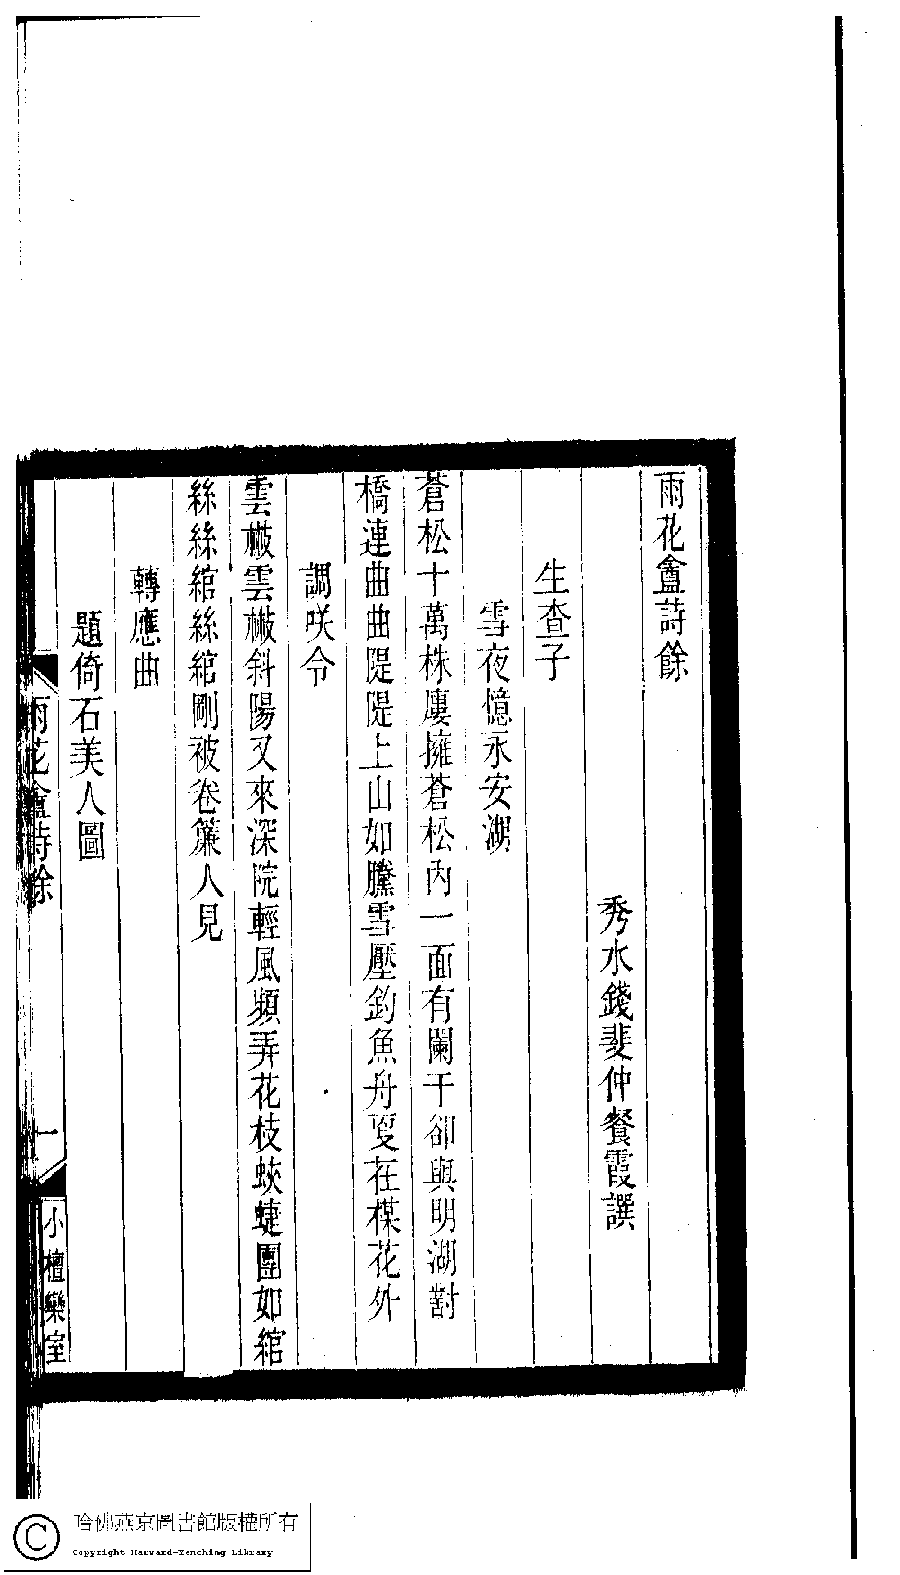 雨花盦詩餘
秀水錢斐仲餐霞譔
生查子
雪夜憶永安湖
蒼松十萬株屢擁蒼松內一面有闌干卻與明湖對
橋連曲曲隄隄上山如騰雪壓釣魚舟夏在楳花外
調咲令
雲樾雲樾斜陽又來深院輕風頻弄花枝蛺蜨團如綰
絲絲綰絲綰剛被卷簾人見
轉應曲
題倚石美人圖
雨花盦詩餘
一
小檀欒室
哈佛燕京圖書館版權所有
Copyright Harvard-Yenching Library